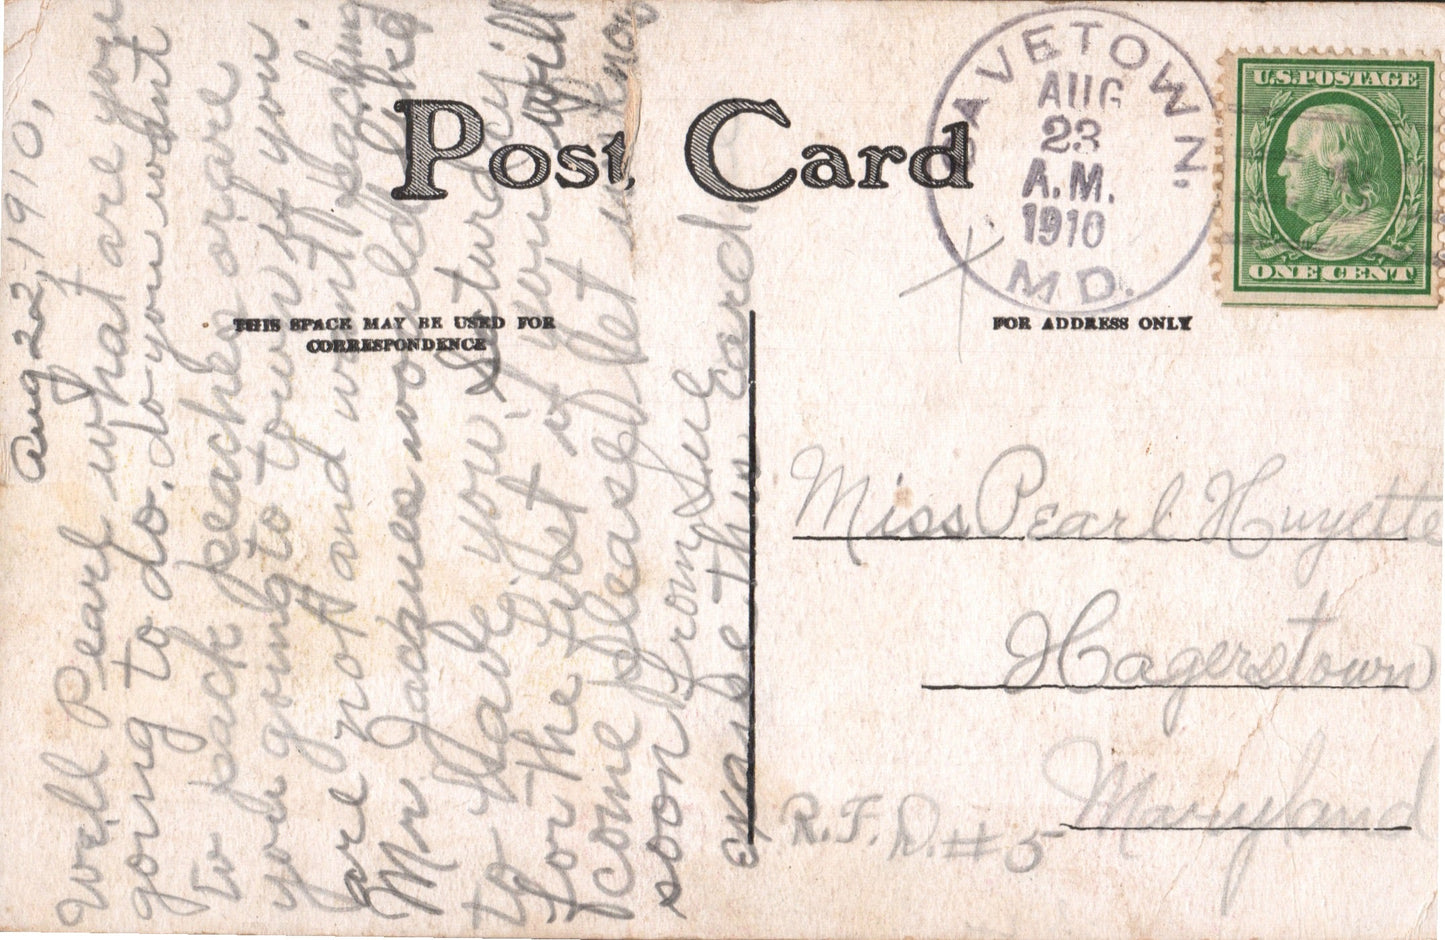 Post Card
THIS SPACE MAY BE USED FOR
CORRESPONDENCE
FOR ADDRESS ONLY
CAVETOWN,
AUG
23
A.M.
1910
MD.
U.S. POSTAGE
ONE CENT
Aug 22, 1910,
Well Pearl what are you
going to do. do you want
to pack peaches or are
you going to town if you
are not and want packing
Mr Jacques would like
to have you Saturday
for the first if you will
come please let us know
soon from Sue
excuse this card.
Miss Pearl Huyette
Hagerstown
Maryland
R.F.D. #5